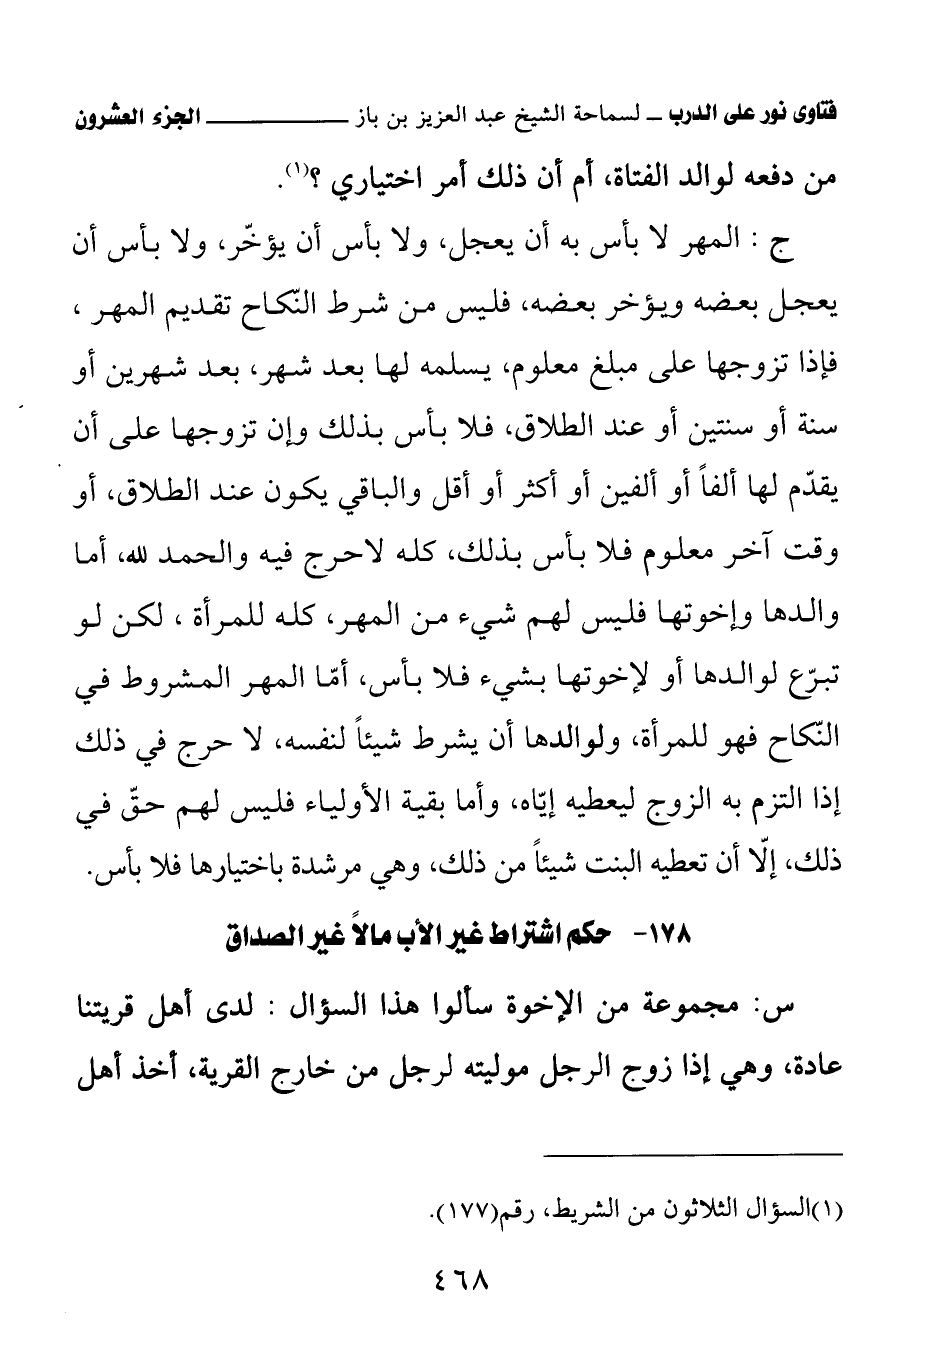 فتاوى نور على الدرب ــ لسماحة الشيخ عبد العزيز بن باز ـــــــــــــــ الجزء العشرون
من دفعه لوالد الفتاة، أم أن ذلك أمر اختياري ؟(١).
ج : المهر لا بأس به أن يعجل، ولا بأس أن يؤخّر، ولا بأس أن
يعجل بعضه ويؤخر بعضه، فليس من شرط النّكاح تقديم المهر ،
فإذا تزوجها على مبلغ معلوم، يسلمه لها بعد شهر، بعد شهرين أو
سنة أو سنتين أو عند الطلاق، فلا بأس بذلك وإن تزوجها على أن
يقدّم لها ألفاً أو ألفين أو أكثر أو أقل والباقي يكون عند الطلاق، أو
وقت آخر معلوم فلا بأس بذلك، كله لاحرج فيه والحمد لله، أما
والدها وإخوتها فليس لهم شيء من المهر، كله للمرأة ، لكن لو
تبرّع لوالدها أو لإخوتها بشيء فلا بأس، أمّا المهر المشروط في
النّكاح فهو للمرأة، ولوالدها أن يشرط شيئاً لنفسه، لا حرج في ذلك
إذا التزم به الزوج ليعطيه إيّاه، وأما بقية الأولياء فليس لهم حقّ في
ذلك، إلّا أن تعطيه البنت شيئاً من ذلك، وهي مرشدة باختيارها فلا بأس.
١٧٨- حكم اشتراط غير الأب مالاً غير الصداق
س: مجموعة من الإخوة سألوا هذا السؤال : لدى أهل قريتنا
عادة، وهي إذا زوج الرجل موليته لرجل من خارج القرية، أخذ أهل
(١)السؤال الثلاثون من الشريط، رقم(١٧٧).
٤٦٨